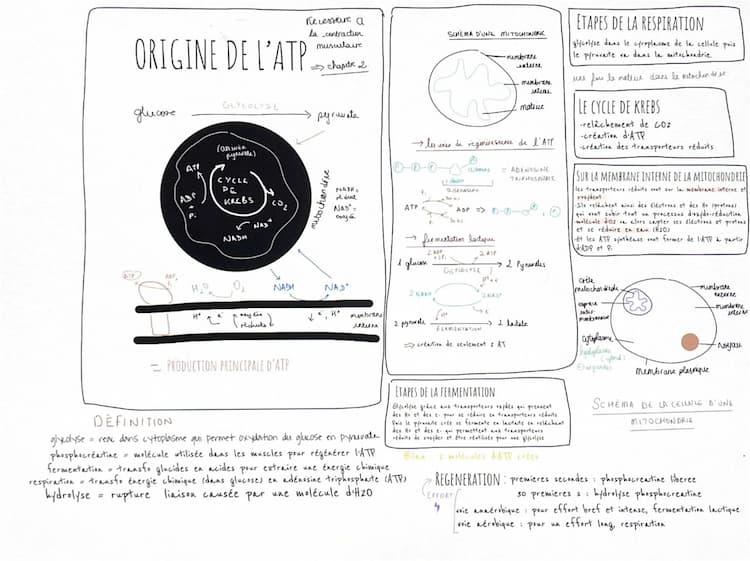 ORIGINE DE L'ATP
Necessaire à
la contraction
musculaire
⇒ chapitre 2
glucose GLYCOLYSE pyruvate
(Ossature pyruvate)
ATP
ADP
+
Pi
CYCLE
DE
KREBS
CO2
NAD+
NADH
mitochondrie
NADH =
réduit
NAD+ =
oxydé
ATP ADP + Pi
H2O O2
NADH NAD+
H+ e- oxydée
réduite
↓ e- H+
membrane
interne
= PRODUCTION PRINCIPALE D'ATP
SCHÉMA D'UNE MITOCHONDRIE
membrane
externe
membrane
interne
matrice
→ les voies de regenerescence de l'ATP
= ADENOSINE
TRIPHOSPHATE
ATP ADP ⇒
→ fermentation lactique
2 ADP
+ 2Pi 2 ATP
1 glucose 2 Pyruvates
GLYCOLYSE
2 NADH 2 NAD+
2 pyruvate 2 lactate
FERMENTATION
⇒ création de seulement 2 AT
ETAPES DE LA RESPIRATION
glycolyse dans le cytoplasme de la cellule puis
le pyruvate va dans la mitochondrie.
une fois la matrice dans la mitochondrie
LE CYCLE DE KREBS
-relâchement de CO2
-création d'ATP
-création des transporteurs réduits
SUR LA MEMBRANE INTERNE DE LA MITOCHONDRIE
les transporteurs réduits vont sur la membrane interne et
s'oxydent
-Ils relâchent ainsi des électrons et des H+ protons
qui vont subir tout un processus d'oxydo-réduction
-molécule d'O2 va alors capter ses électrons et protons
et se réduire en eau (H2O)
-Et les ATP synthase vont former de l'ATP à partir
d'ADP et Pi
mitochondriale
membrane
externe
membrane
interne
espace
inter-
membranaire
Cytoplasme
hyaloplasme
(cytosol)
Organites
noyau
Membrane plasmique
SCHÉMA DE LA CELLULE D'UNE
MITOCHONDRIE
ETAPES DE LA FERMENTATION
Glycolyse grâce aux transporteurs oxydés qui prennent
des H+ et des e- pour se réduire en transporteurs réduits
Puis le pyruvate créé se fermente en lactate en relâchant
des H+ et des e- qui permettent aux transporteurs
réduits de s'oxyder et être réutilisés pour une glycolyse
Bilan : 2 molécules d'ATP créées
DÉFINITION
glycolyse = voie dans cytoplasme qui permet oxydation du glucose en pyruvate
phosphocréatine = molécule utilisée dans les muscles pour régénérer l'ATP
fermentation = transfo glucides en acides pour extraire une énergie chimique
respiration = transfo énergie chimique (dans glucose) en adénosine triphosphate (ATP)
hydrolyse = rupture liaison causée par une molécule d'H2O
REGENERATION : premieres secondes : phosphocreatine liberee
EFFORT
30 premieres s : hydrolyse phosphocreatine
voie anaérobique : pour effort bref et intense, fermentation lactique
voie aérobique : pour un effort long, respiration